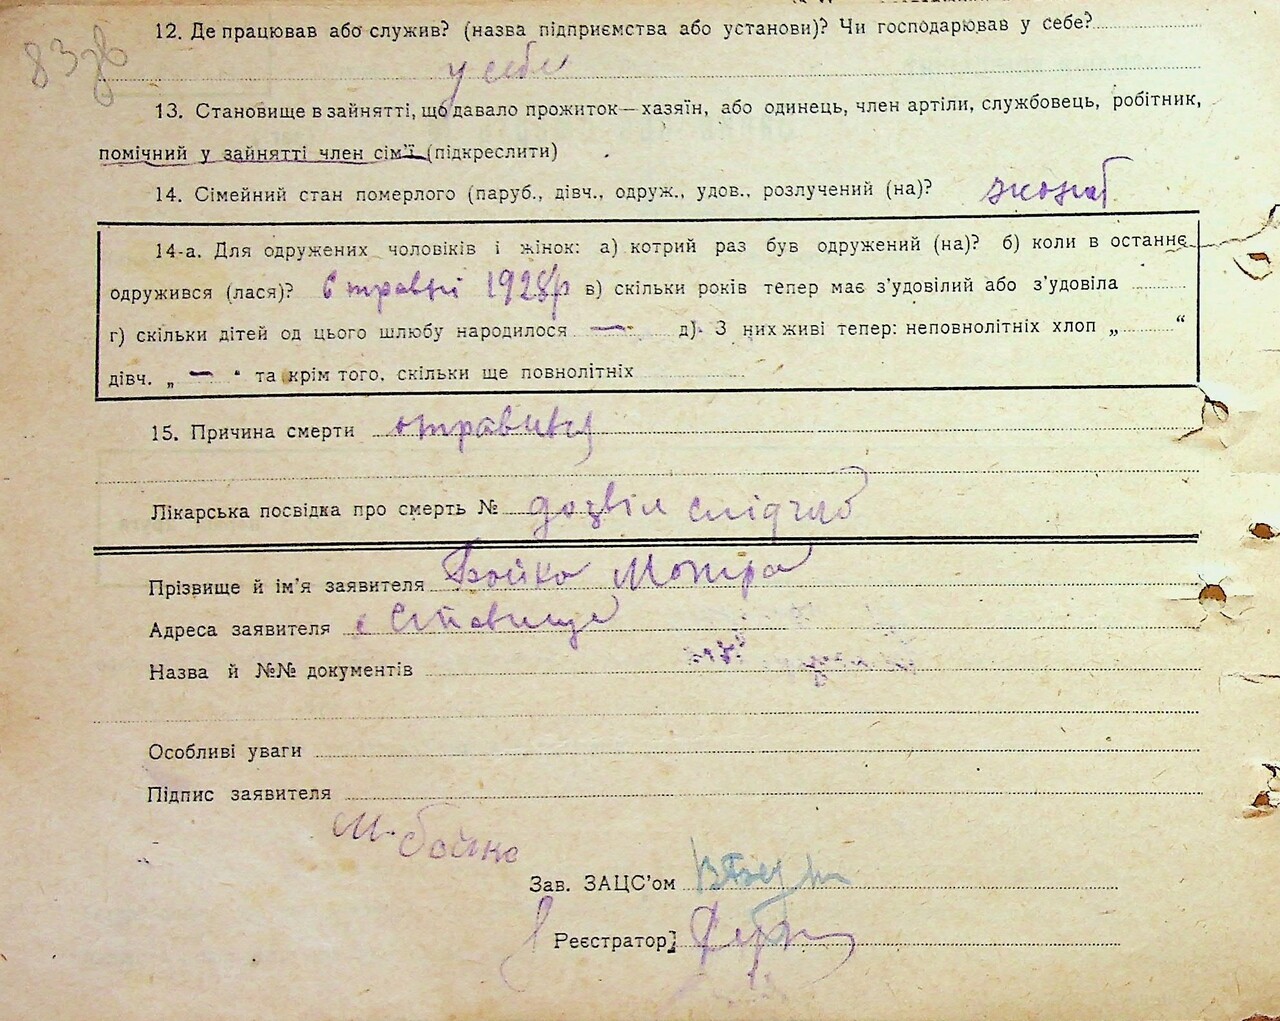 83зв
12. Де працював або служив? (назва підприємства або установи)? Чи господарював у себе?
у себе
13. Становище в зайнятті, що давало прожиток—хазяїн, або одинець, член артіли, службовець, робітник,
помічний у зайнятті член сім'ї (підкреслити)
14. Сімейний стан померлого (паруб., дівч., одруж., удов., розлучений (на)? жонат
14-а. Для одружених чоловіків і жінок: а) котрий раз був одружений (на)? б) коли в останнє
одружився (лася)? 6 травні 1928 р в) скільки років тепер має з'удовілий або з'удовіла
г) скільки дітей од цього шлюбу народилося — д). З них живі тепер: неповнолітніх хлоп „ “
дівч. „ — “ та крім того, скільки ще повнолітніх
15. Причина смерти отравився
Лікарська посвідка про смерть № дозвіл слідчого
Прізвище й ім'я заявителя Бойко Мотря
Адреса заявителя с Ставище
Назва й №№ документів
Особливі уваги
Підпис заявителя
М. Бойко
Зав. ЗАЦС'ом
Реєстратор